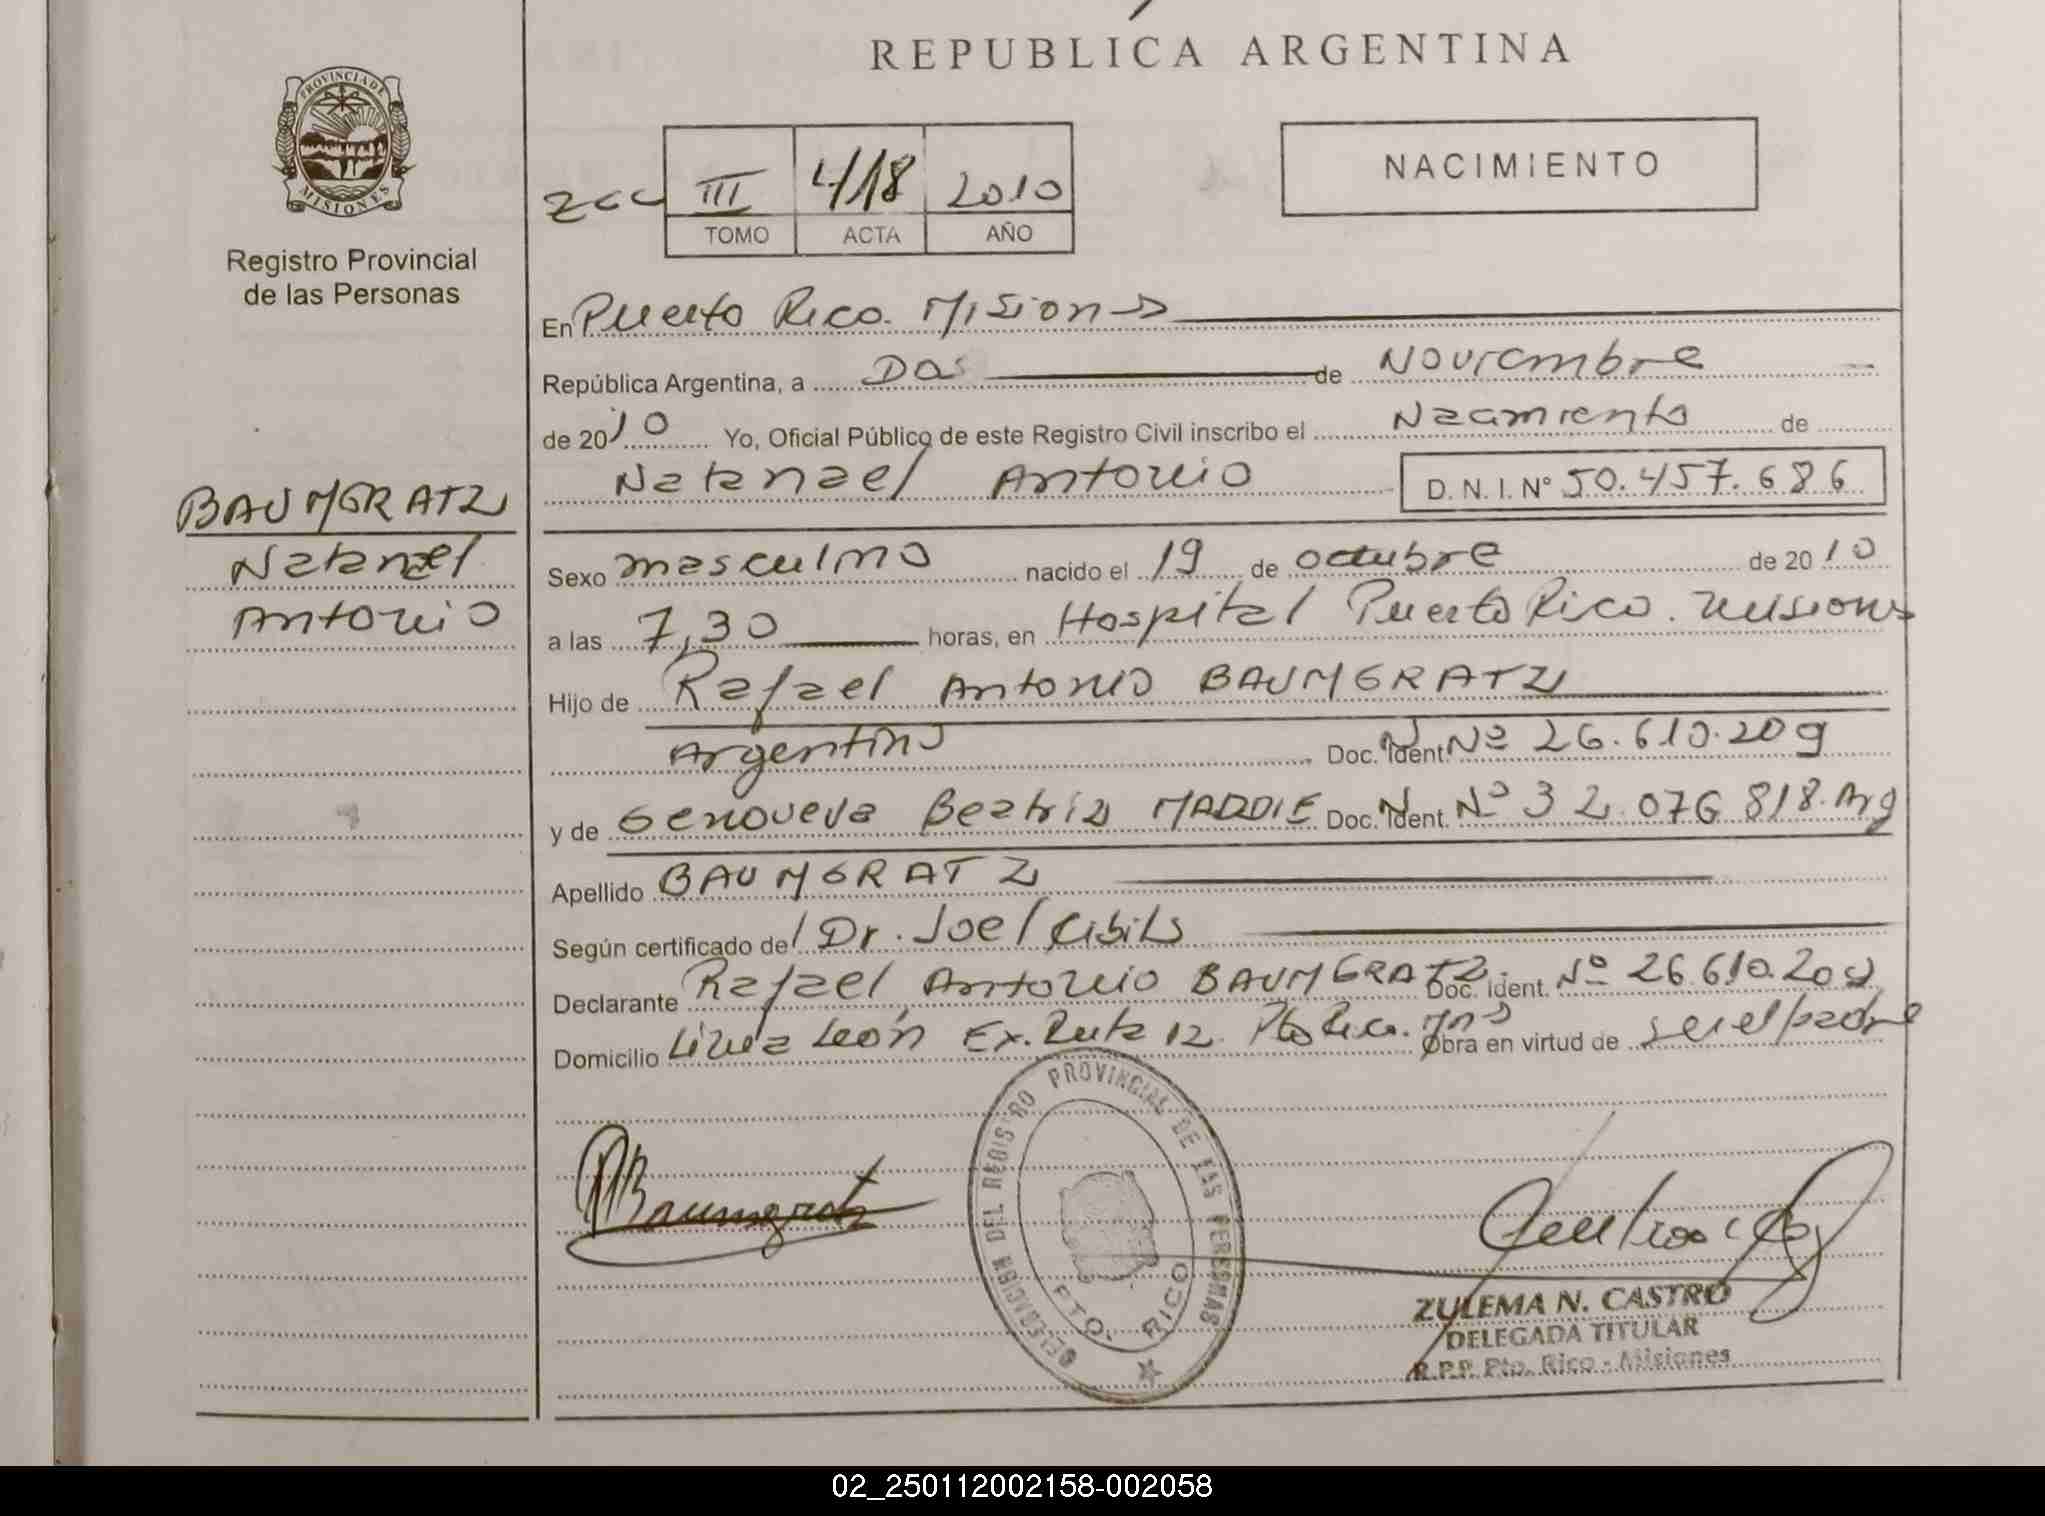 REPUBLICA ARGENTINA
PROVINCIA DE
MISIONES
Registro Provincial
de las Personas
III 418 2010
TOMO ACTA AÑO
NACIMIENTO
En Puerto Rico. Misiones
República Argentina, a Dos de Noviembre
de 2010 Yo, Oficial Público de este Registro Civil inscribo el Nacimiento de
Natanael Antonio D. N. I. Nº 50.457.686
BAUMGRATZ
Natanael
Antonio
Sexo masculino nacido el 19 de octubre de 2010
a las 7,30 horas, en Hospital Puerto Rico. Misiones
Hijo de Rafael Antonio BAUMGRATZ
Argentino Doc. Ident. Nº 26.610.209
y de Genoveva Beatriz Doc. Ident. Nº 32.076.818. Arg
Apellido BAUMGRATZ
Según certificado del Dr. Joel Cibils
Declarante Rafael Antonio BAUMGRATZ Doc. Ident. Nº 26.610.209
Domicilio Línea León Ex. Ruta 12. Pto Rico. Mns Obra en virtud de ser el padre
Baumgratz
DELEGACION DEL REGISTRO PROVINCIAL DE LAS PERSONAS
PTO. RICO
ZULEMA N. CASTRO
DELEGADA TITULAR
R.P.P. Pto. Rico - Misiones
02_250112002158-002058